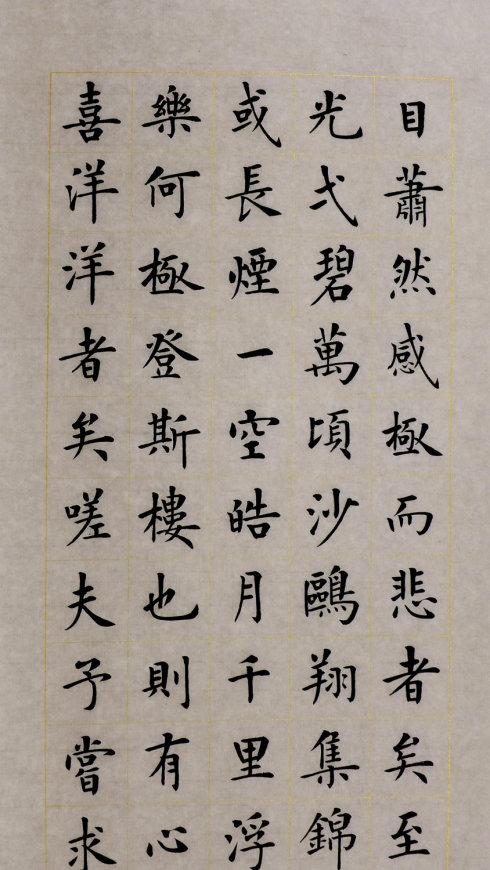 目蕭然感極而悲者矣至
光弌碧萬頃沙鷗翔集錦
或長煙一空皓月千里浮
樂何極登斯樓也則有心
喜洋洋者矣嗟夫予嘗求